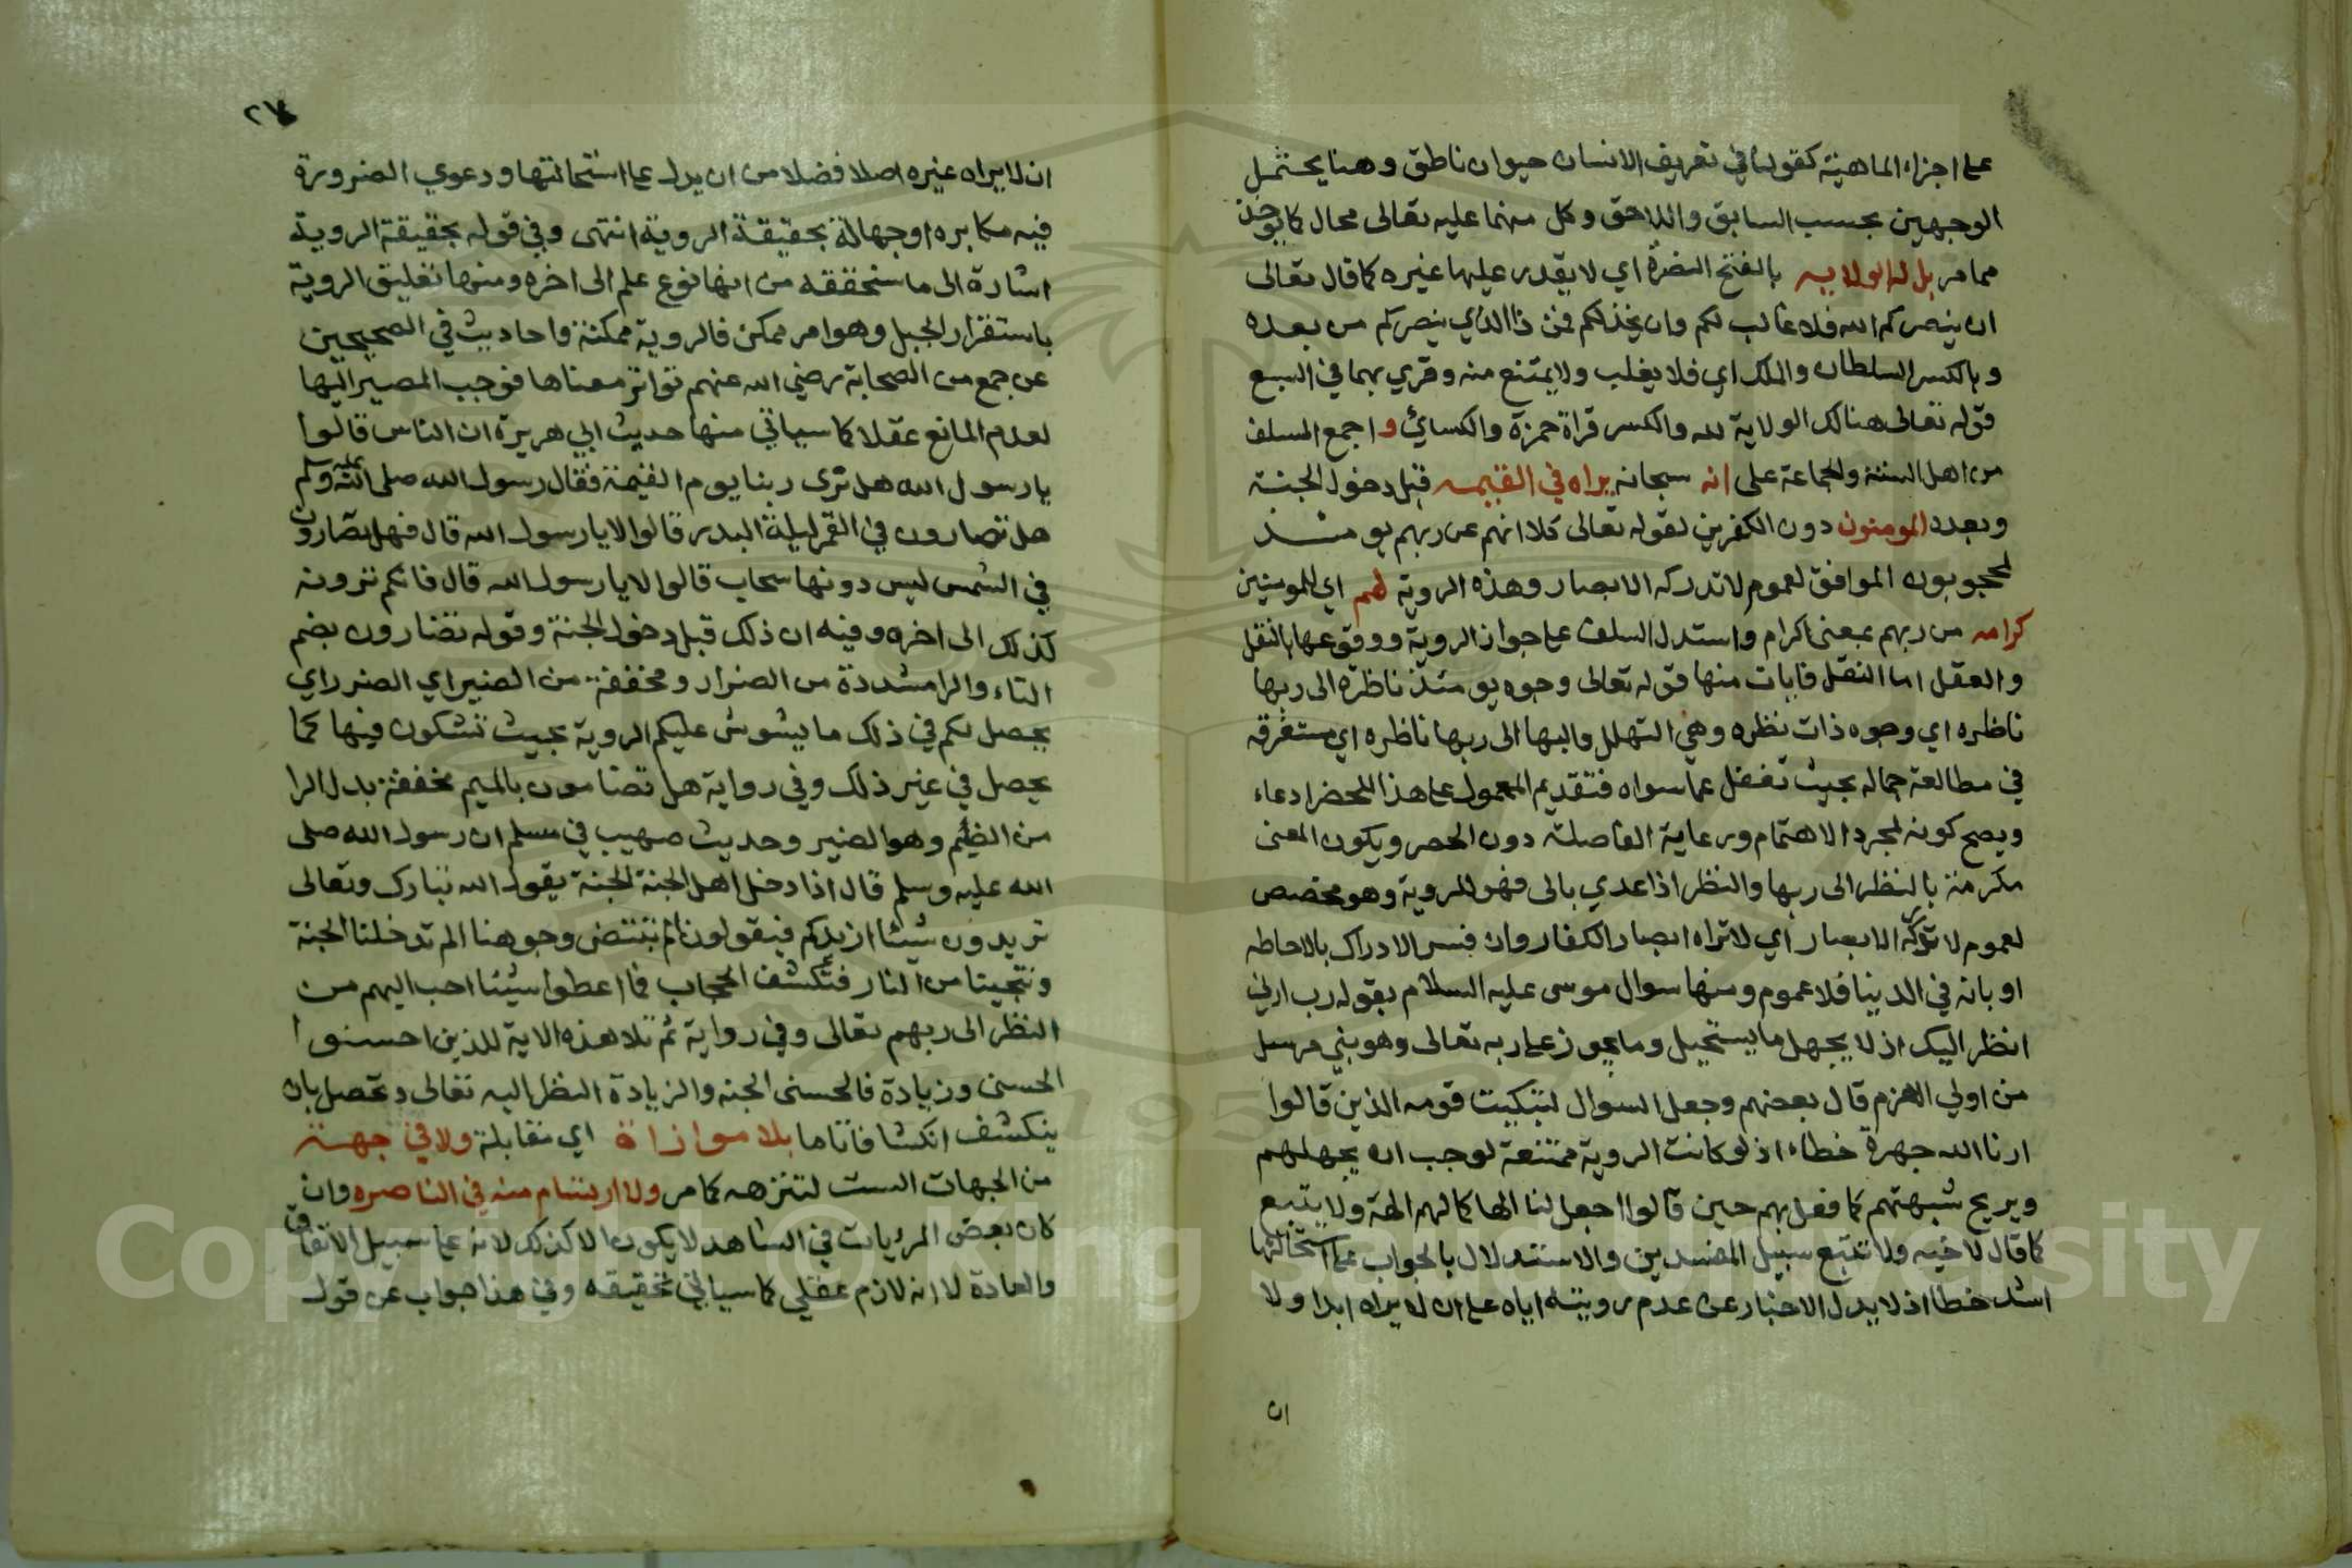 على اجزاء الماهية كقولنا في تعريف الانسان حيوان ناطق وهنا يحتمل
الوجهين بحسب السابق واللاحق وكل منهما عليه تعالى محال كما يوخذ
مما مر بل له الولايه بالفتح النصرة اي لا يقدر عليها غيره كما قال تعالى
ان ينصركم الله فلا غالب لكم وان يخذلكم فمن ذا الذي ينصركم من بعده
وبالكسر السلطان والملك اي فلا يغلب ولا يمتنع منه وقري بهما في السبع
قوله تعالى هنالك الولاية لله والكسر قراة حمزة والكسائي و اجمع السلف
من اهل السنة والجماعة على انه سبحانه يراه في القيمه قبل دخول الجنة
وبعده المومنون دون الكفرين لقوله تعالى كلا انهم عن ربهم يومئذ
لمحجوبون الموافق لعموم لا تدركه الابصار وهذه الروية لهم اي للمومنين
كرامه من ربهم بمعنى اكرام واستدل السلف على جواز الروية ووقوعها بالنقل
والعقل اما النقل فايات منها قوله تعالى وجوه يومئذ ناظره الى ربها
ناظره اي وجوه ذات نظره وهي التهلل والبها الى ربها ناظره اي مستغرقه
في مطالعة جماله بحيث تغفل عما سواه فتقديم المعمول على هذا للحصر ادعاء
ويصح كونه لمجرد الاهتمام ورعاية الفاصلة دون الحصر ويكون المعنى
مكرمة بالنظر الى ربها والنظر اذا عدي بالى فهو للروية وهو مخصص
لعموم لا تدركه الابصار اي لا تراه ابصار الكفار وان فسر الادراك بالاحاطه
او بانه في الدينا فلا عموم ومنها سوال موسى عليه السلام بقوله رب ارني
انظر اليك اذ لا يجهل ما يستحيل وما يجوز على ربه تعالى وهو نبي مرسل
من اولي العزم قال بعضهم وجعل السوال لتبكيت قومه الذين قالوا
ارنا الله جهرة خطاء اذ لو كانت الروية ممتنعة لوجب ان يجهلهم
ويريح شبهتهم كما فعل بهم حين قالوا اجعل لنا الها كما لهم الهة ولا يتبع
كما قال لاخيه ولا تتبع سبيل المفسدين والاستدلال بالجواب على استحالتها
اشد خطا اذ لا يدل الاخبار عن عدم رويته اياه على ان لا يراه ابدا ولا
ان
ان لا يراه غيره اصلا فضلا من ان يدل على استحالتها ودعوي الضرورة
فيه مكابره او جهالة بحقيقة الروية انتهى وفي قوله بحقيقة الروية
اشارة الى ما سنحققه من انها نوع علم الى اخره ومنها تعليق الروية
باستقرار الجبل وهو امر ممكن فالروية ممكنة واحاديث في الصحيحين
عن جمع من الصحابة رضي الله عنهم تواتر معناها فوجب المصير اليها
لعدم المانع عقلا كما سياتي منها حديث ابي هريرة ان الناس قالوا
يا رسول الله هل نرى ربنا يوم القيمة فقال رسول الله صلى الله عليه وسلم
هل تضارون في القمر ليلة البدر قالوا لا يا رسول الله قال فهل تضارون
في الشمس ليس دونها سحاب قالوا لا يا رسول الله قال فانكم ترونه
كذلك الى اخره وفيه ان ذلك قبل دخول الجنة وقوله تضارون بضم
التاء والرا مشددة من الضرار ومخففة من الضير اي الضرر اي
يحصل لكم في ذلك ما يشوش عليكم الروية بحيث تشكون فيها كما
يحصل في غير ذلك وفي رواية هل تضامون بالميم مخففة بدل الرا
من الضيم وهو الضير وحديث صهيب في مسلم ان رسول الله صلى
الله عليه وسلم قال اذا دخل اهل الجنة الجنة يقول الله تبارك وتعالى
تريدون شيئا ازيدكم فيقولون الم تبيض وجوهنا الم تدخلنا الجنة
وتنجينا من النار فتكشف الحجاب فما اعطوا شيئا احب اليهم من
النظر الى ربهم تعالى وفي رواية ثم تلا هذه الاية للذين احسنوا
الحسنى وزيادة فالحسنى الجنه والزيادة النظر اليه تعالى وتحصل بان
ينكشف انكشافا تاما بلا موازاة اي مقابلة ولا في جهة
من الجهات الست لتنزهه كما مر ولا ارتسام منه في الناصره وان
كان بعض المرئيات في الشاهد لا يكون الا كذلك لانه على سبيل الاتفاق
والعادة لا انه لازم عقلي كما سياتي تحقيقه وفي هذا جواب عن قول
Copyright © King Saud University
195